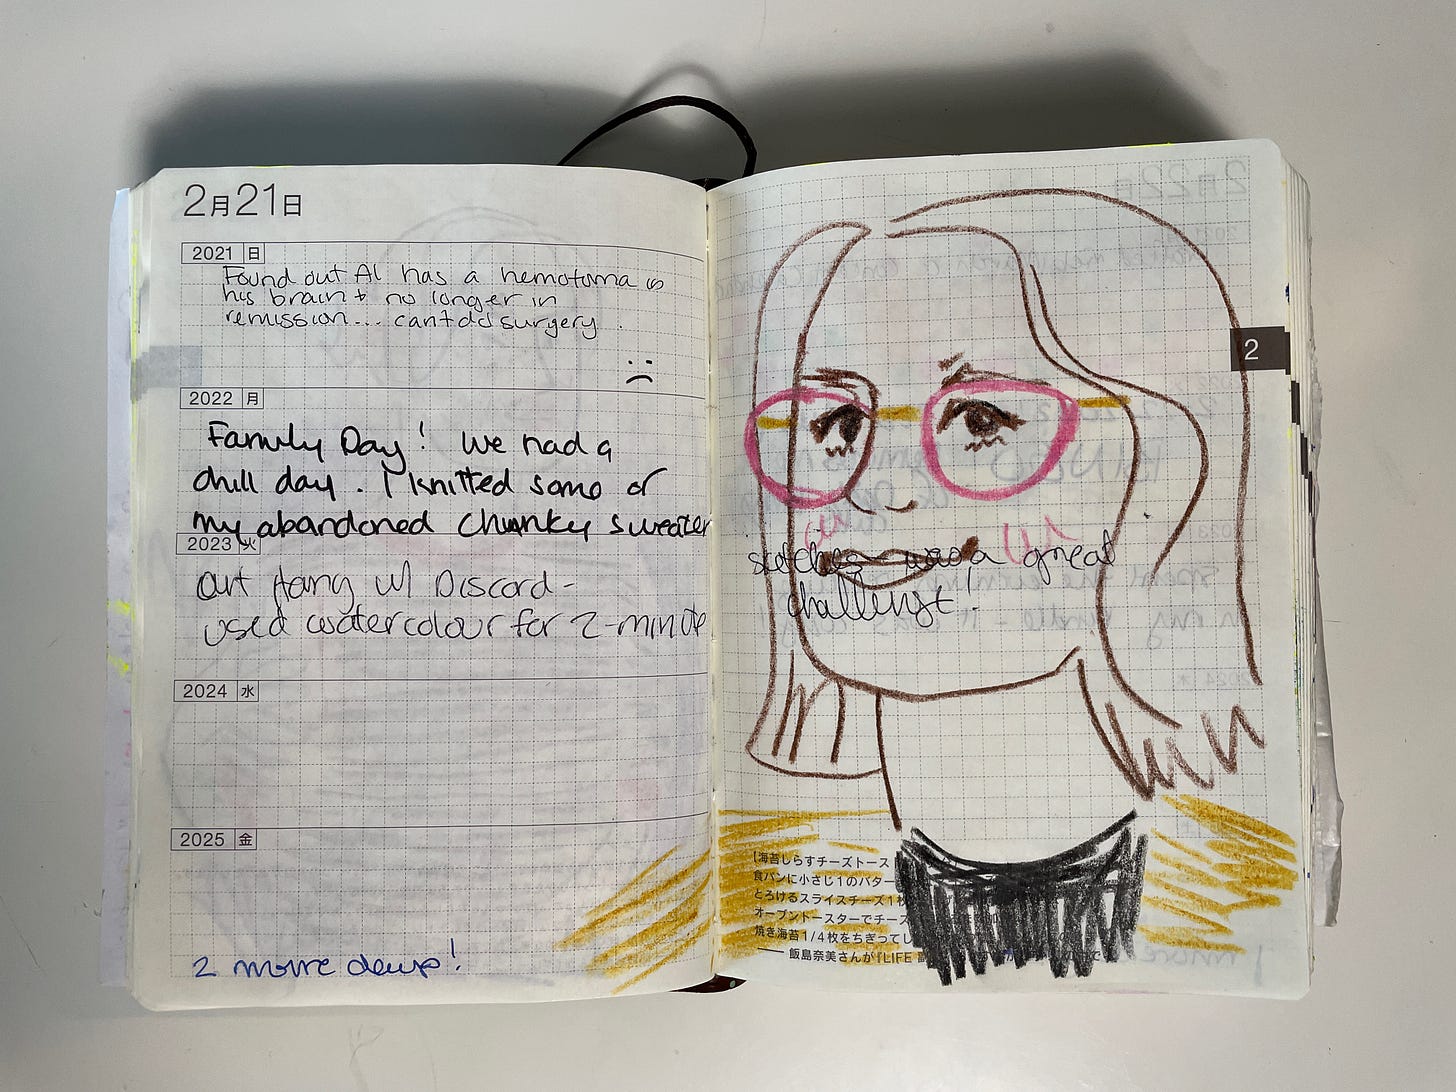 2月21日
2021 日
Found out Al has a hemotoma in
his brain + no longer in
remission... cant do surgery.
2022 月
Family Day! We had a
chill day. I knitted some of
my abandoned chunky sweater
2023 火
art hang w/ Discord -
used watercolour for 2-minute
sketches - was a great
challenge!
2024 水
2025 金
2 more days!
2
[海苔しらすチーズトース
食パンに小さじ1のバター
とろけるスライスチーズ1枚
オーブントースターでチーズ
焼き海苔1/4枚をちぎってし
── 飯島奈美さんが『LIFE